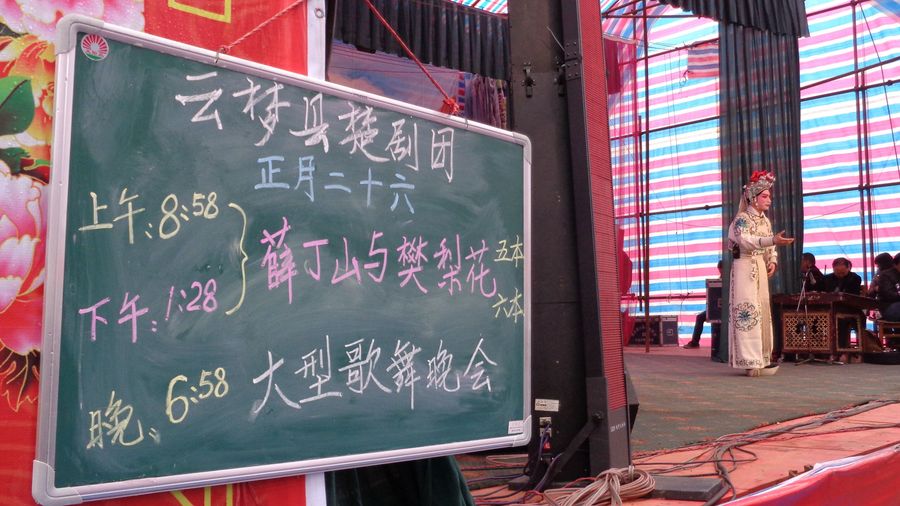 云梦县楚剧团
正月二十六
上午:8:58
薛丁山与樊梨花 五本
下午:1:28
六本
晚:6:58 大型歌舞晚会